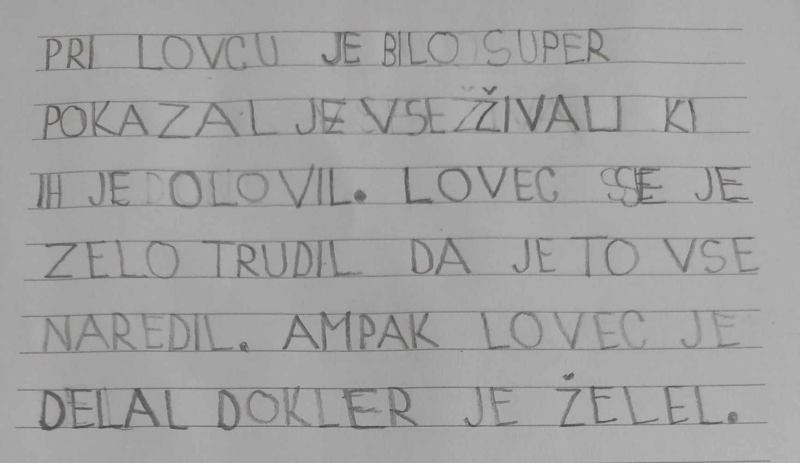 PRI LOVCU JE BILO SUPER
POKAZAL JE VSE ŽIVALI KI
IH JE OLOVIL. LOVEC SE JE
ZELO TRUDIL DA JE TO VSE
NAREDIL. AMPAK LOVEC JE
DELAL DOKLER JE ŽELEL.